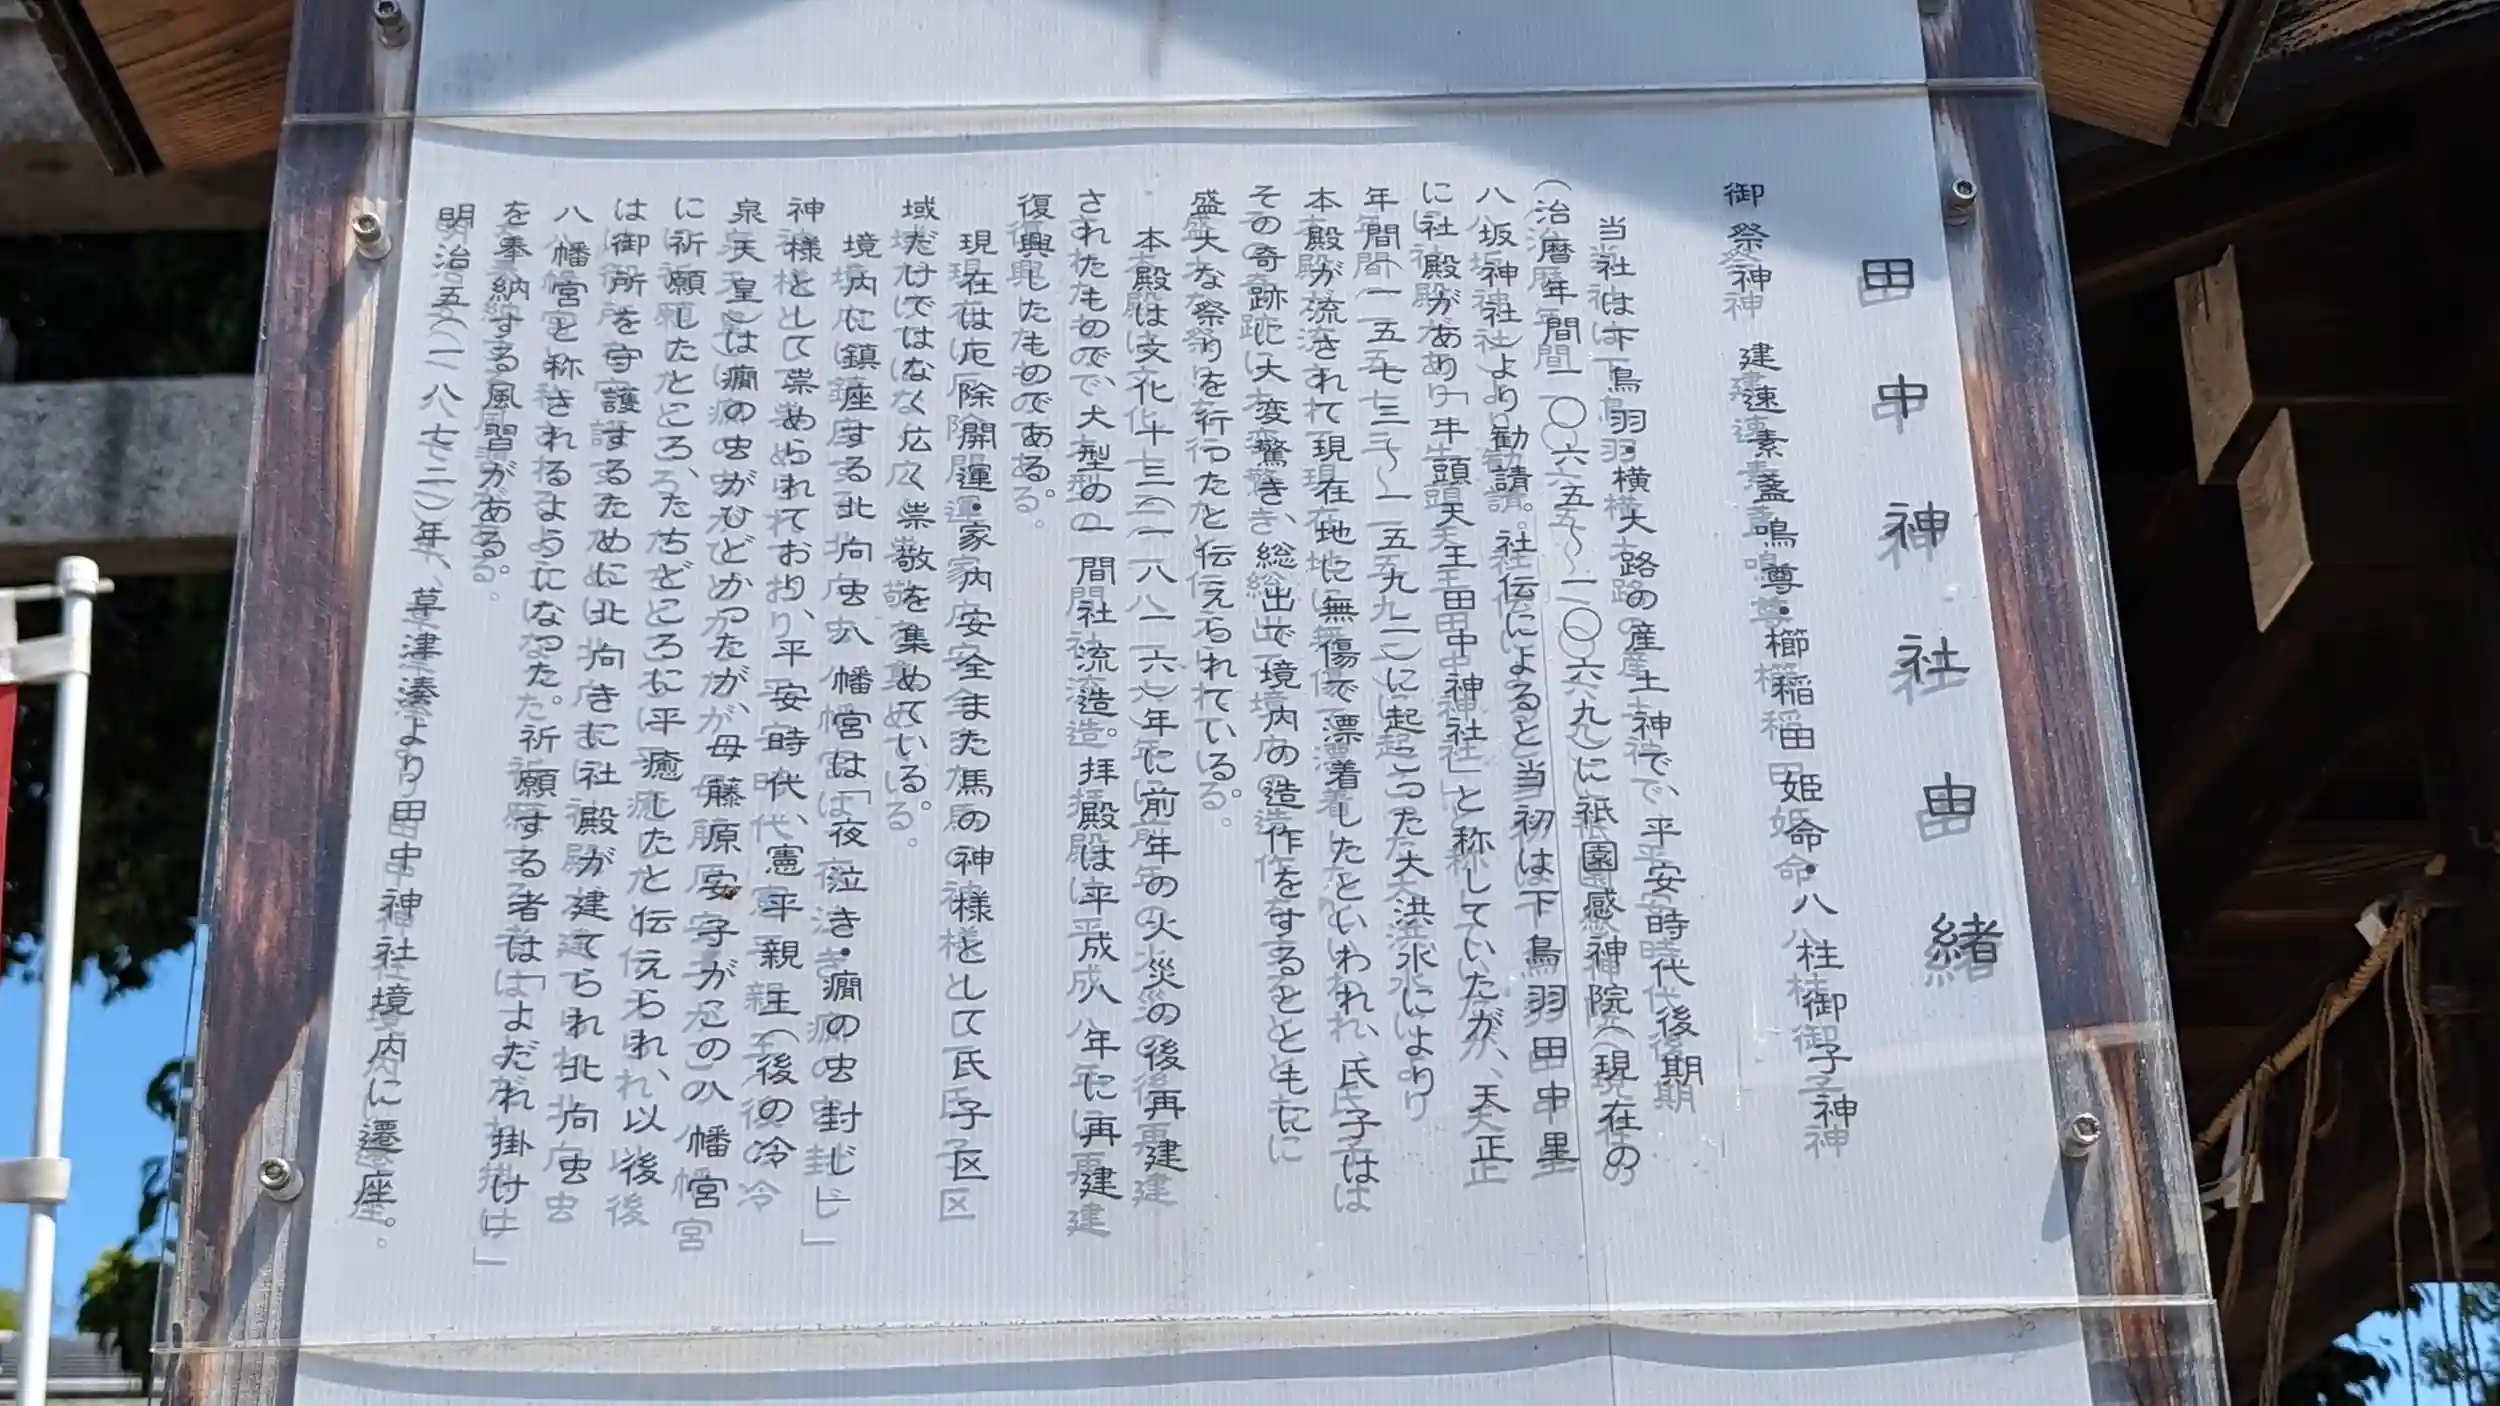 田中神社由緒
御祭神 建速素盞鳴尊・櫛稲田姫命・八柱御子神
当社は下鳥羽・横大路の産土神で、平安時代後期
(治暦年間一〇六五〜一〇六九)に祇園感神院(現在の
八坂神社)より勧請。社伝によると当初は下鳥羽田中里
に社殿があり「牛頭天王田中神社」と称していたが、天正
年間(一五七三〜一五九二)に起こった大洪水により
本殿が流されて現在地に無傷で漂着したといわれ、氏子は
その奇跡に大変驚き、総出で境内の造作をするとともに
盛大な祭りを行ったと伝えられている。
本殿は文化十三(一八一六)年に前年の火災の後再建
されたもので、大型の一間社流造。拝殿は平成八年に再建
復興したものである。
現在は厄除開運・家内安全また馬の神様として氏子区
域だけではなく広く崇敬を集めている。
境内に鎮座する北向虫八幡宮は「夜泣き・癇の虫封じ」
神様として崇められており、平安時代、憲平親王(後の冷
泉天皇)は癇の虫がひどかったが、母藤原安子がこの八幡宮
に祈願したところ、たちどころに平癒したと伝えられ、以後
は御所を守護するために北向きに社殿が建てられ北向虫
八幡宮と称されるようになった。祈願する者は「よだれ掛け」
を奉納する風習がある。
明治五(一八七二)年、草津湊より田中神社境内に遷座。